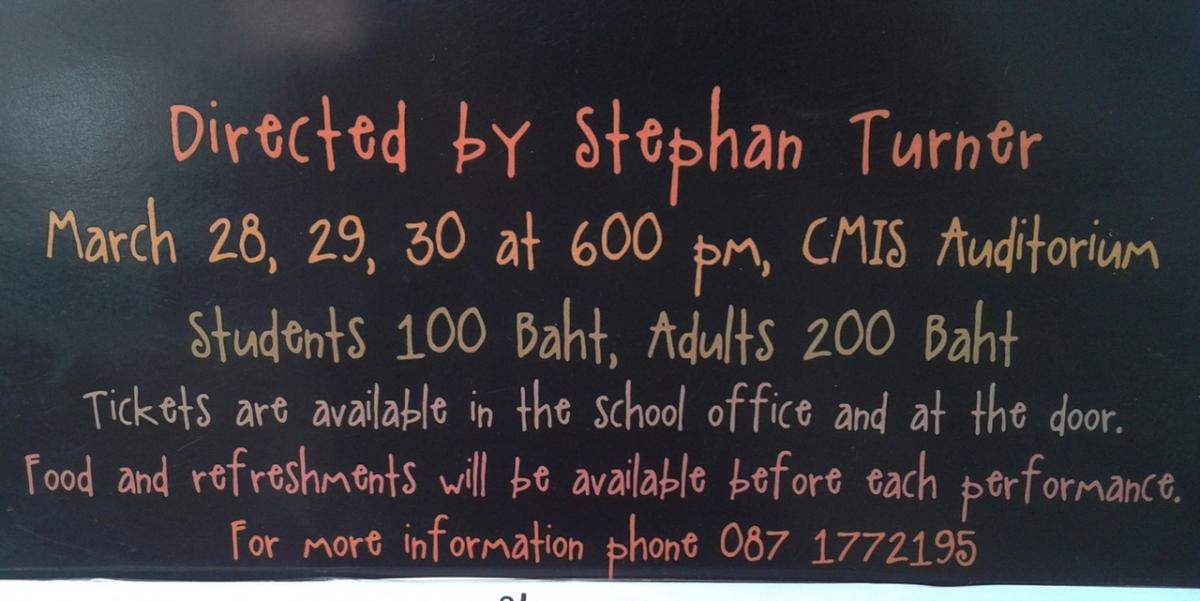 Directed by Stephan Turner
March 28, 29, 30 at 600 pm, CMIS Auditorium
Students 100 Baht, Adults 200 Baht
Tickets are available in the school office and at the door.
Food and refreshments will be available before each performance.
For more information phone 087 1772195